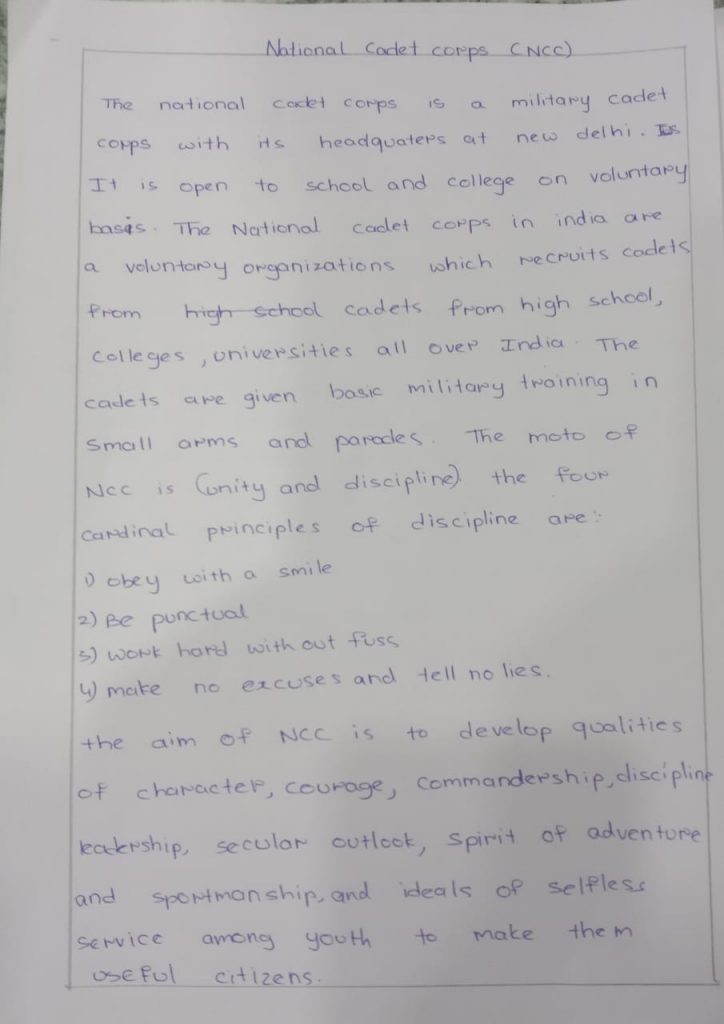 National Cadet corps (NCC)
The national cadet corps is a military cadet
corps with its headquaters at new delhi.
It is open to school and college on voluntary
basis. The National cadet corps in india are
a voluntary organizations which recruits cadets
from high school cadets from high school,
Colleges, universities all over India. The
cadets are given basic military training in
Small arms and parades. The moto of
NCC is (unity and discipline). the four
Cardinal principles of discipline are:
1) obey with a smile
2) Be punctual
3) work hard with out fuss
4) make no excuses and tell no lies.
the aim of NCC is to develop qualities
of character, courage, Commandership, discipline
leadership, secular outlook, spirit of adventure
and sportmanship, and ideals of selfless
service among youth to make them
useful citizens.